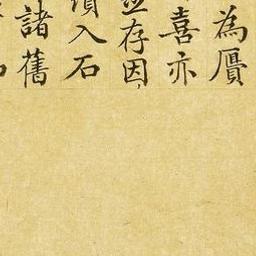 為贋
喜亦
並存因
須入石
諸舊